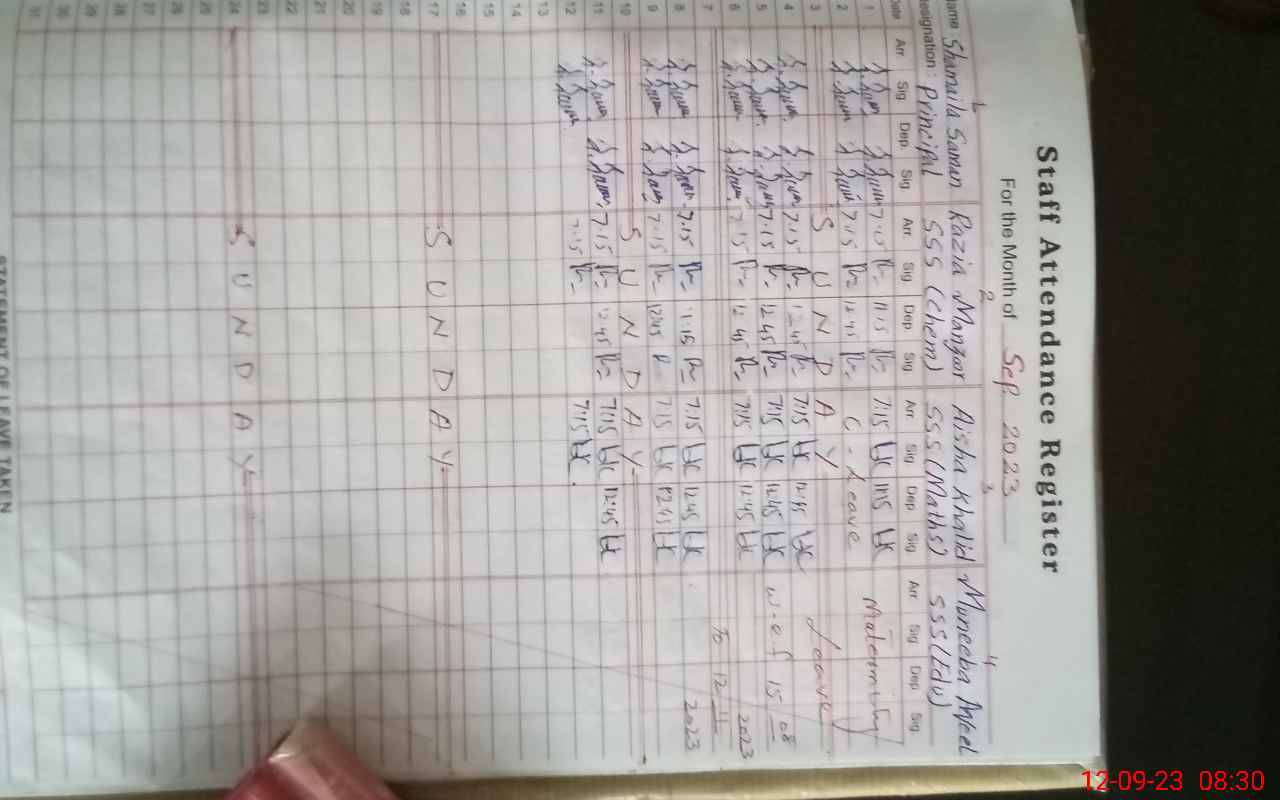 Staff Attendance Register
For the Month of Sep. 2023
1 2 3 4
Name: Shamaila Saman Razia Manzoor Aisha Khalid Muneeba Aqeel
Designation: Principal SSS (Chem) SSS (Maths) SSS (Edu)
Date Arr Sig Dep. Sig Arr. Sig Dep Sig Arr Sig Dep Sig. Arr Sig Dep Sig.
1 7:15 11:15 7:15 11:15 Maternity
2 7:15 12:45 C - Leave
3 S U N D A Y Leave
4 7:15 12:45 7:15 12:45 w-e-f 15 08
5 7:15 12:45 7:15 12:45 2023
6 7:15 12:45 7:15 12:45 To 12 11
7 2023
8 7:15 11:15 7:15 12:45
9 7:15 12:45 7:15 12:45
10 S U N D A Y
11 7:15 12:45 7:15 12:45
12 7:15 7:15
13
14
15
16
17 S U N D A Y
18
19
20
21
22
23
24 S U N D A Y
25
26
27
28
29
30
31
STATEMENT OF LEAVE TAKEN
12-09-23 08:30